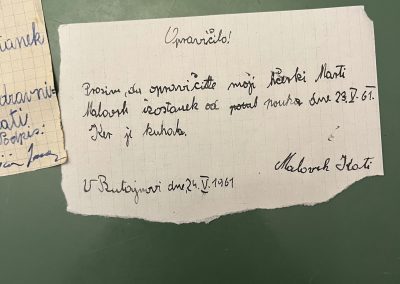 ianek
dravni=
ati
Podpis:
Opravičilo!
Prosim, da opravičite moji hčerki Marti
Malovrh izostanek od pouka dne 23. V. 61.
Ker je kuhala.
Malovrh Kati
V Butajnovi dne 24. V. 1961